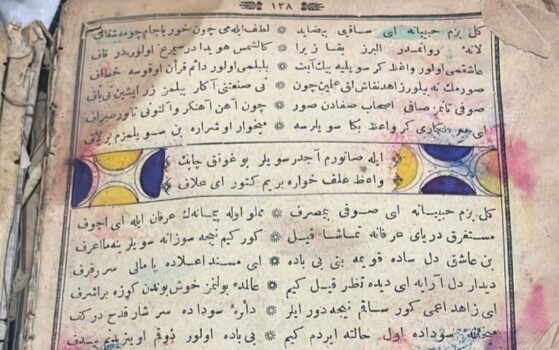 ١٢٨
كل بزم حبيبانه اى ساقئ بيضايد ❊ لطف ايله مى چون خور با جام چو مه شفاف
لانه روانمدر البرز بقا زيرا ❊ كالشمس هويدا در سيمرغ اولور در قاف
عاشقمى اولور واعظ كر سويليه بيك آيت ❊ بلبلمى اولور دائم قرآن اوقوسه خطاف
صورمك نه بيلور زاهد نقاش علمين چون ❊ بى صنعتى آكار بيلمز زر ايشين نى باف
صوفى تانمز صافى اصحاب صفادن صور ❊ چون آهن آهنكر و آلتونى تانور صراف
اى كر واعظ بكا سويلرسه ❊ ميخوار او شراره بن سويلمزم برلاف
ايله صانورم آجدر سويلر بو
واعظ علف خواره بريم كتور اى علاف
كل بزم حبيبانه اى صوفى بيصرف ❊ مملو اوله پيمانه ك عرفان ايله اى اجوف
مستغرق درياى عرفانه تماشا قيل ❊ كور كيم نيجه سوزانه سويلر ينه ما اعرف
بن عاشق دل ساده قويمه بنى بى باده ❊ اى مسند اعلاده پامالى سر رفرف
ديدار دل آرايه اى ديده نظر قيل كيم ❊ عالمده بولنمز خوش بوندن كوزه بر اشرف
اى زاهد اعمى كور ساقيم نيجه دور ايلر ❊ دائره سوداده سرشار قدح در كف
ميخانه سوداده اول حالنه ايردم كيم ❊ بى باده اولور ذوقم